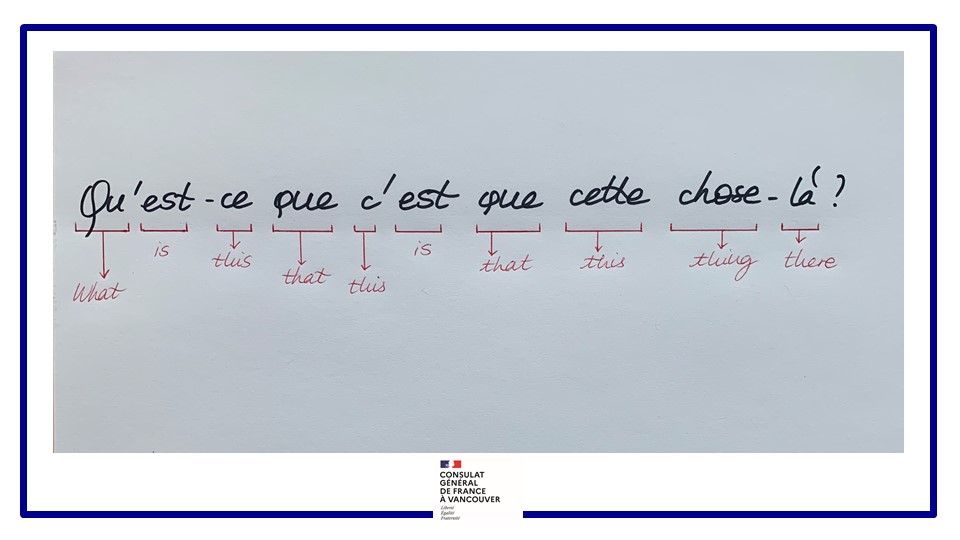 Qu'est-ce que c'est que cette chose-là?
What is this that this is that this thing there
CONSULAT
GÉNÉRAL
DE FRANCE
À VANCOUVER
Liberté
Égalité
Fraternité